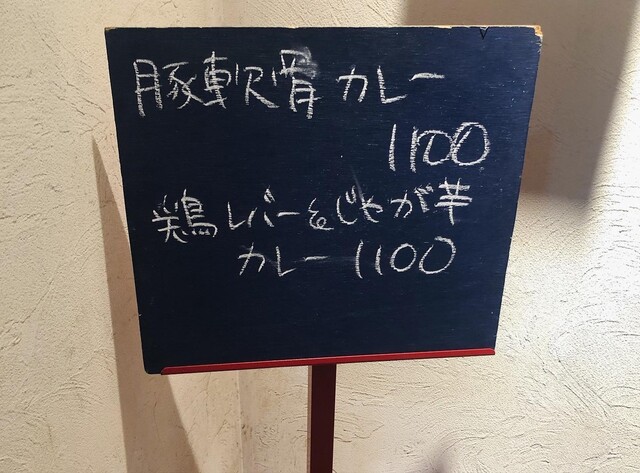 豚軟骨カレー
1100
鶏レバー&じゃが芋
カレー1100